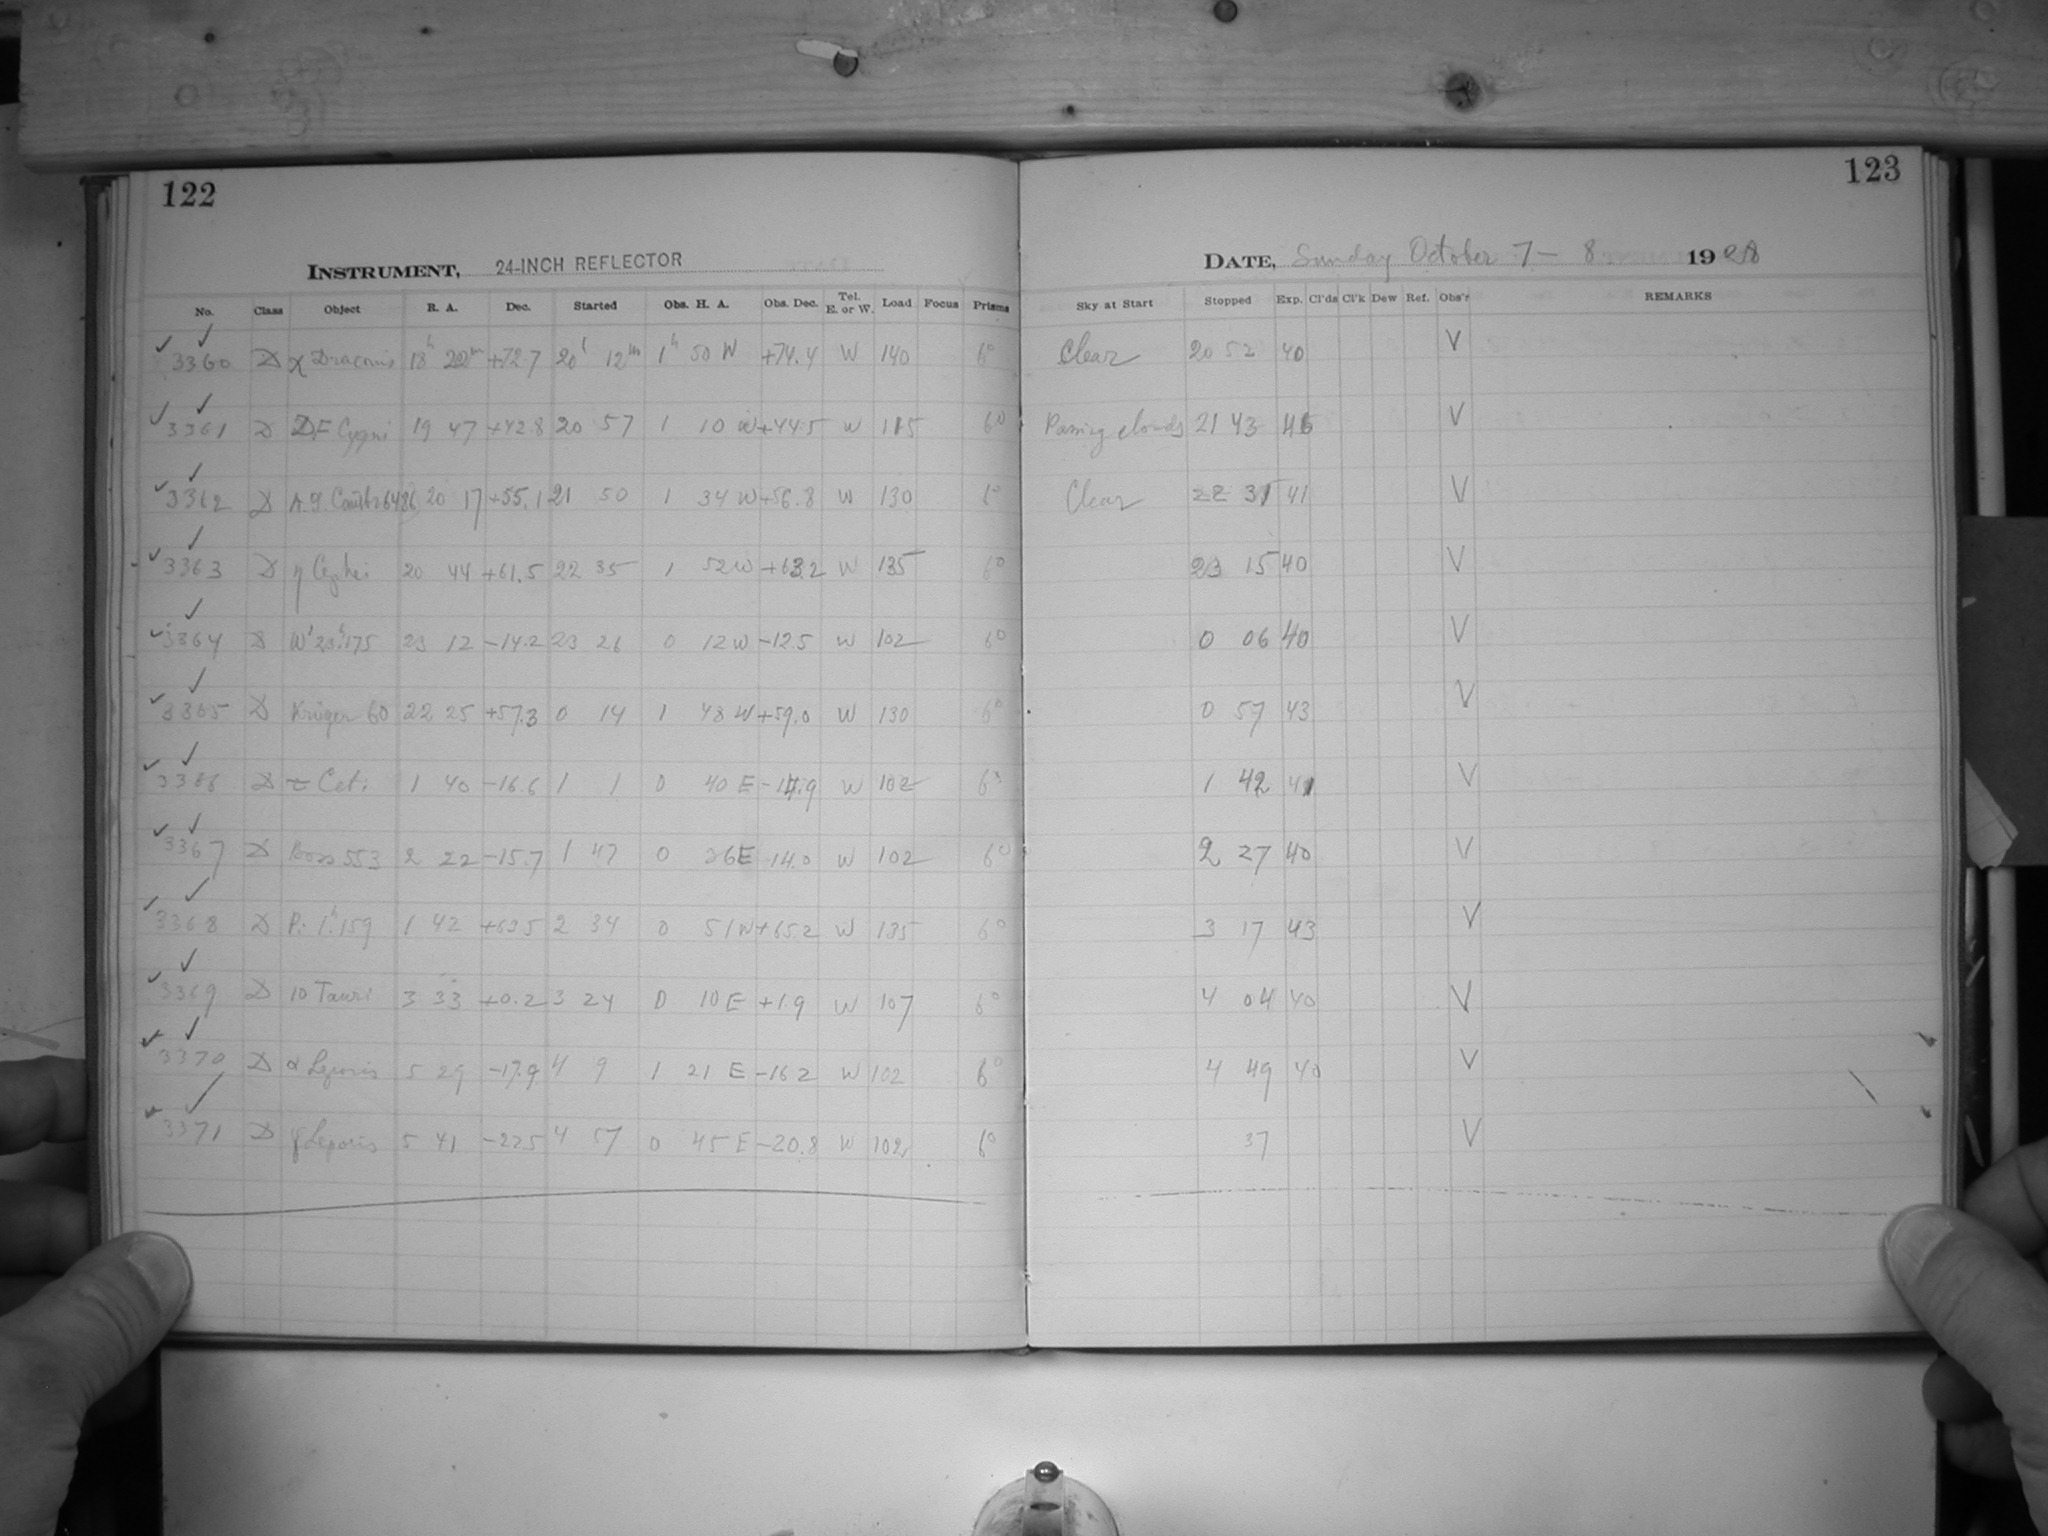 122
INSTRUMENT, 24-INCH REFLECTOR
No. Class Object R. A. Dec. Started Obs. H. A. Obs. Dec. Tel. E. or W. Load Focus Prisms
3360 D χ Draconis 18h 22m +72.7 20h 12m 1h 50 W +74.4 W 140 6°
3361 D DF Cygni 19 47 +42.8 20 57 1 10 W +44.5 W 115 6°
3362 D 20 17 +55.1 21 50 1 34 W +56.8 W 130 6°
3363 D η Cephei 20 44 +61.5 22 35 1 52 W +63.2 W 135 6°
3364 D W' 23h 175 23 12 -14.2 23 26 0 12 W -12.5 W 102 6°
3365 D Krüger 60 22 25 +57.3 0 14 1 48 W +59.0 W 130 6°
3366 D τ Ceti 1 40 -16.6 1 1 0 40 E -14.9 W 102 6°
3367 D Boss 553 2 22 -15.7 1 47 0 26 E -14.0 W 102 6°
3368 D Pi 1h 159 1 42 +63.5 2 34 0 51 W +65.2 W 135 6°
3369 D 10 Tauri 3 33 +0.2 3 24 0 10 E +1.9 W 107 6°
3370 D α Leporis 5 29 -17.9 4 9 1 21 E -16.2 W 102 6°
3371 D γ Leporis 5 41 -22.5 4 57 0 45 E -20.8 W 102 6°
123
DATE, Sunday October 7 - 8 1928
Sky at Start Stopped Exp. Cl'ds Cl'k Dew Ref. Obs'r REMARKS
Clear 20 52 40 V
Passing clouds 21 43 46 V
Clear 22 31 41 V
23 15 40 V
0 06 40 V
0 57 43 V
1 42 41 V
2 27 40 V
3 17 43 V
4 04 40 V
4 49 40 V
37 V